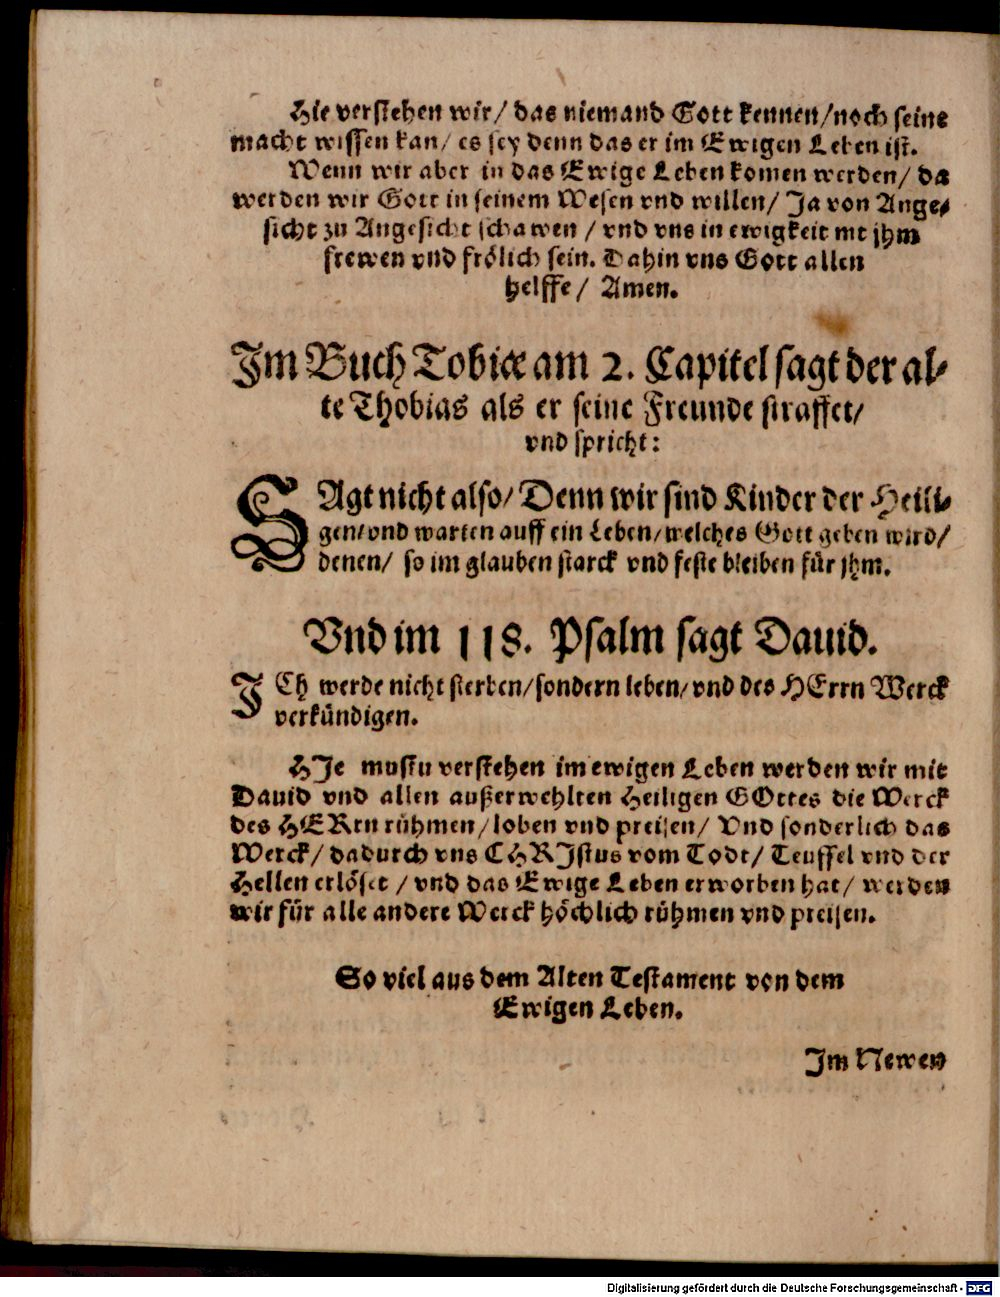 Hie verstehen wir/ das niemand Gott kennen/noch seine
macht wissen kan/ es sey denn das er im Ewigen Leben ist.
Wenn wir aber in das Ewige Leben komen werden/ da
werden wir Gott in seinem Wesen vnd willen/ Ja von Ange-
sicht zu Angesicht schawen / vnd vns in ewigkeit mt jhm
frewen vnd frölich sein. Dahin vns Gott allen
helffe/ Amen.
Im Buch Tobiæ am 2. Capitel sagt der al-
te Thobias als er seine Freunde straffet/
vnd spricht:
SAgt nicht also/ Denn wir sind Kinder der Heili-
gen/vnd warten auff ein Leben/welches Gott geben wird/
denen/ so im glauben starck vnd feste bleiben für jhm.
Vnd im 118. Psalm sagt Dauid.
ICh werde nicht sterben/sondern leben/vnd des HErrn Werck
verkündigen.
HIe mustu verstehen im ewigen Leben werden wir mit
Dauid vnd allen außerwehlten Heiligen GOttes die Werck
des HERrn rühmen/loben vnd preisen/ Vnd sonderlich das
Werck/ dadurch vns CHRIstus vom Todt/ Teuffel vnd der
Hellen erlöset / vnd das Ewige Leben erworben hat/ werden
wir für alle andere Werck höchlich rühmen vnd preisen.
So viel aus dem Alten Testament von dem
Ewigen Leben.
Im Newen
Digitalisierung gefördert durch die Deutsche Forschungsgemeinschaft - DFG